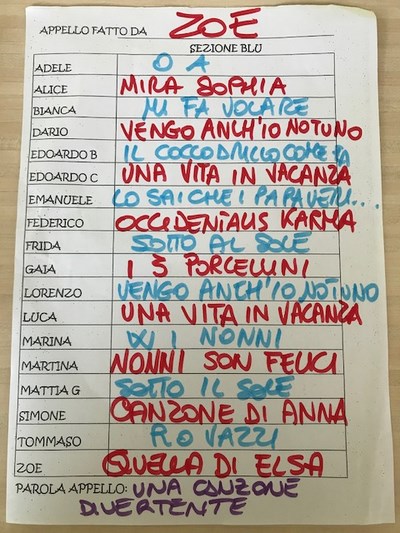 APPELLO FATTO DA ZOE
SEZIONE BLU
ADELE O A
ALICE MIRA SOPHIA
BIANCA MI FA VOLARE
DARIO VENGO ANCH'IO NO TU NO
EDOARDO B IL COCCODRILLO COME FA
EDOARDO C UNA VITA IN VACANZA
EMANUELE LO SAI CHE I PAPAVERI...
FEDERICO OCCIDENTALIS KARMA
FRIDA SOTTO AL SOLE
GAIA I 3 PORCELLINI
LORENZO VENGO ANCH'IO NO TU NO
LUCA UNA VITA IN VACANZA
MARINA W I NONNI
MARTINA NONNI SON FELICI
MATTIA G SOTTO IL SOLE
SIMONE CANZONE DI ANNA
TOMMASO ROVAZZI
ZOE QUELLA DI ELSA
PAROLA APPELLO: UNA CANZONE
DIVERTENTE